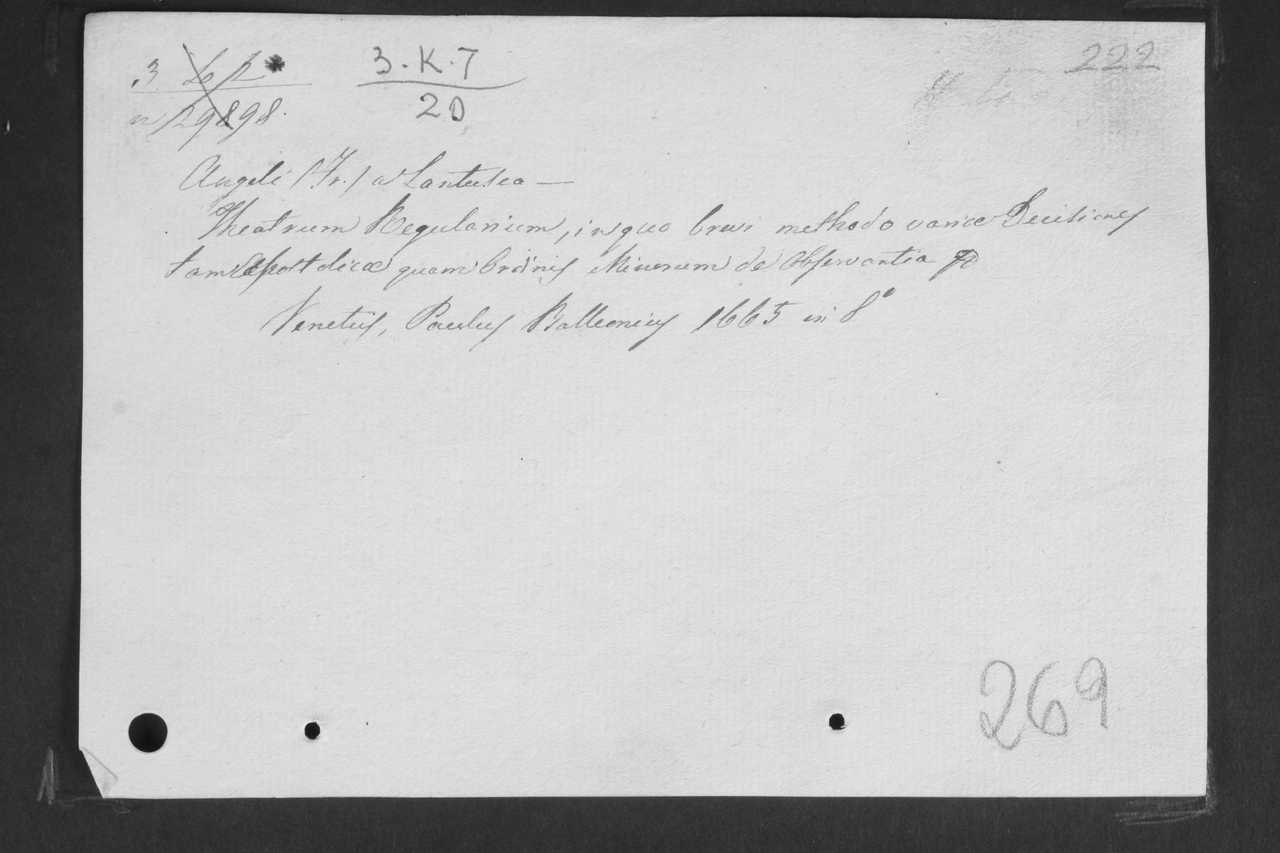 3 L 2 *
3.K.7
20
222
n 29898.
Angeli (Fr.) a Lantusca —
Theatrum Regularium, in quo brevi methodo variæ Decisiones
tam Apostolicæ quam Ordinis Minorum de Observantia &c
Venetiis, Paulus Balleonius 1665 in 8°
269